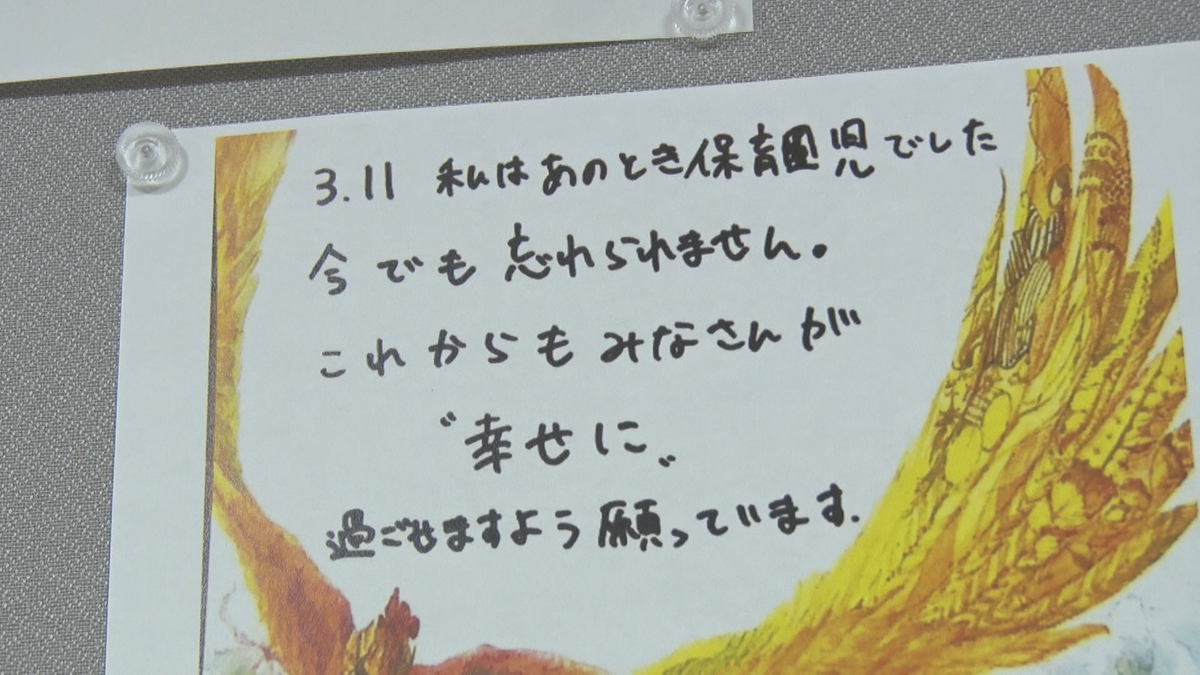 3.11 私はあのとき保育園児でした
今でも忘れられません。
これからもみなさんが
〝幸せに〟
過ごせますよう願っています.